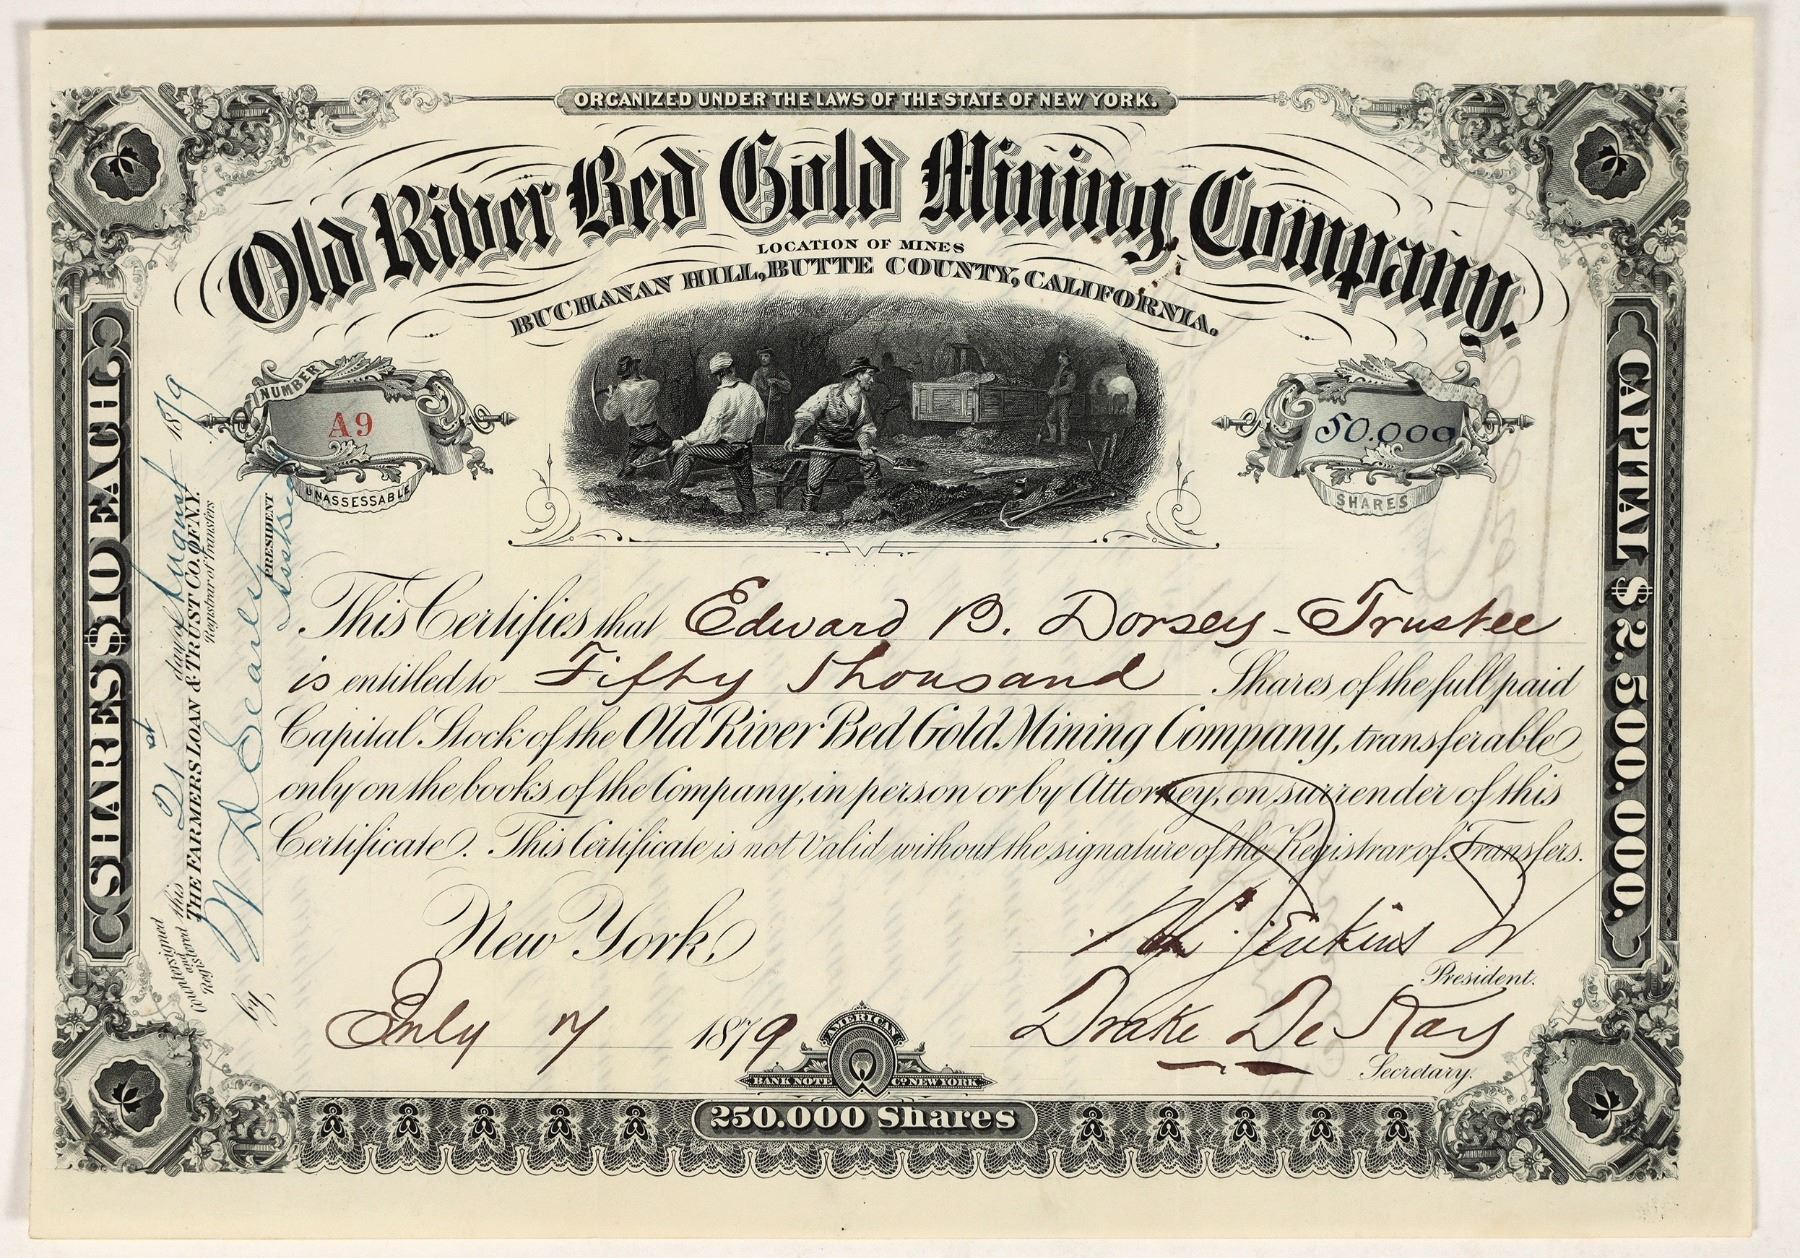 ORGANIZED UNDER THE LAWS OF THE STATE OF NEW YORK.
Old River Bed Gold Mining Company.
LOCATION OF MINES
BUCHANAN HILL, BUTTE COUNTY, CALIFORNIA.
NUMBER
A9
UNASSESSABLE
50.000
SHARES
SHARES $10 EACH
CAPITAL $2.500.000.
This Certifies that Edward B. Dorsey - Trustee
is entitled to Fifty Thousand Shares of the full paid
Capital Stock of the Old River Bed Gold Mining Company, transferable
only on the books of the Company, in person or by Attorney, on surrender of this
Certificate. This Certificate is not Valid without the signature of the Registrar of Transfers.
New York,
July 17 1879
Jenkins Jr
President.
Drake De Kay
Secretary.
AMERICAN
BANK NOTE CO. NEW YORK
250.000 Shares
Countersigned and Registered this 21st day of August 1879
THE FARMERS LOAN & TRUST CO. OF N.Y.
Registrar of Transfers
by W D Searls
PRESIDENT